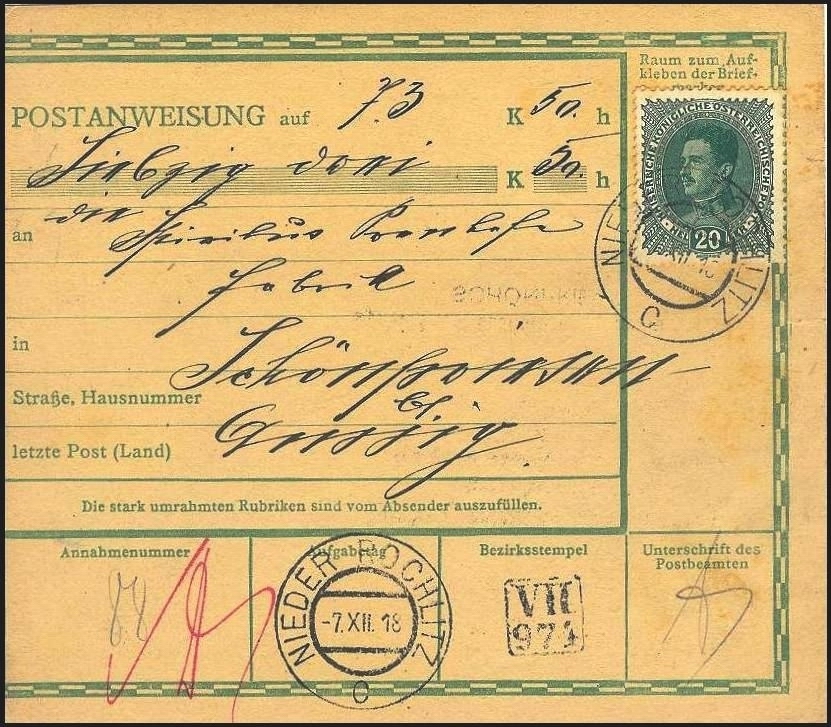 Raum zum Auf-
kleben der Brief-
marken
POSTANWEISUNG auf 73 K 50. h
Siebzig drei K 50. h
an die Spiritus
Fabrik
in
Straße, Hausnummer
bei
letzte Post (Land) Aussig.
Die stark umrahmten Rubriken sind vom Absender auszufüllen.
KAISERLICHE KÖNIGLICHE ÖSTERREICHISCHE POST
20
NIEDER ROCHLITZ
XII. 18
C
Annahmenummer
88
Aufgabetag
NIEDER ROCHLITZ
-7.XII. 18
C
Bezirksstempel
VII
974
Unterschrift des
Postbeamten